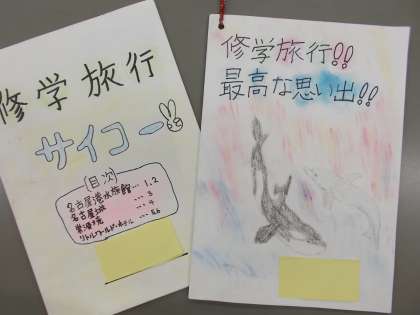 修学旅行
サイコー
(目次)
名古屋港水族館… 1.2
名古屋城 … 3
… 4
リトルワールド・ホテル … 5.6
修学旅行!!
最高な思い出!!